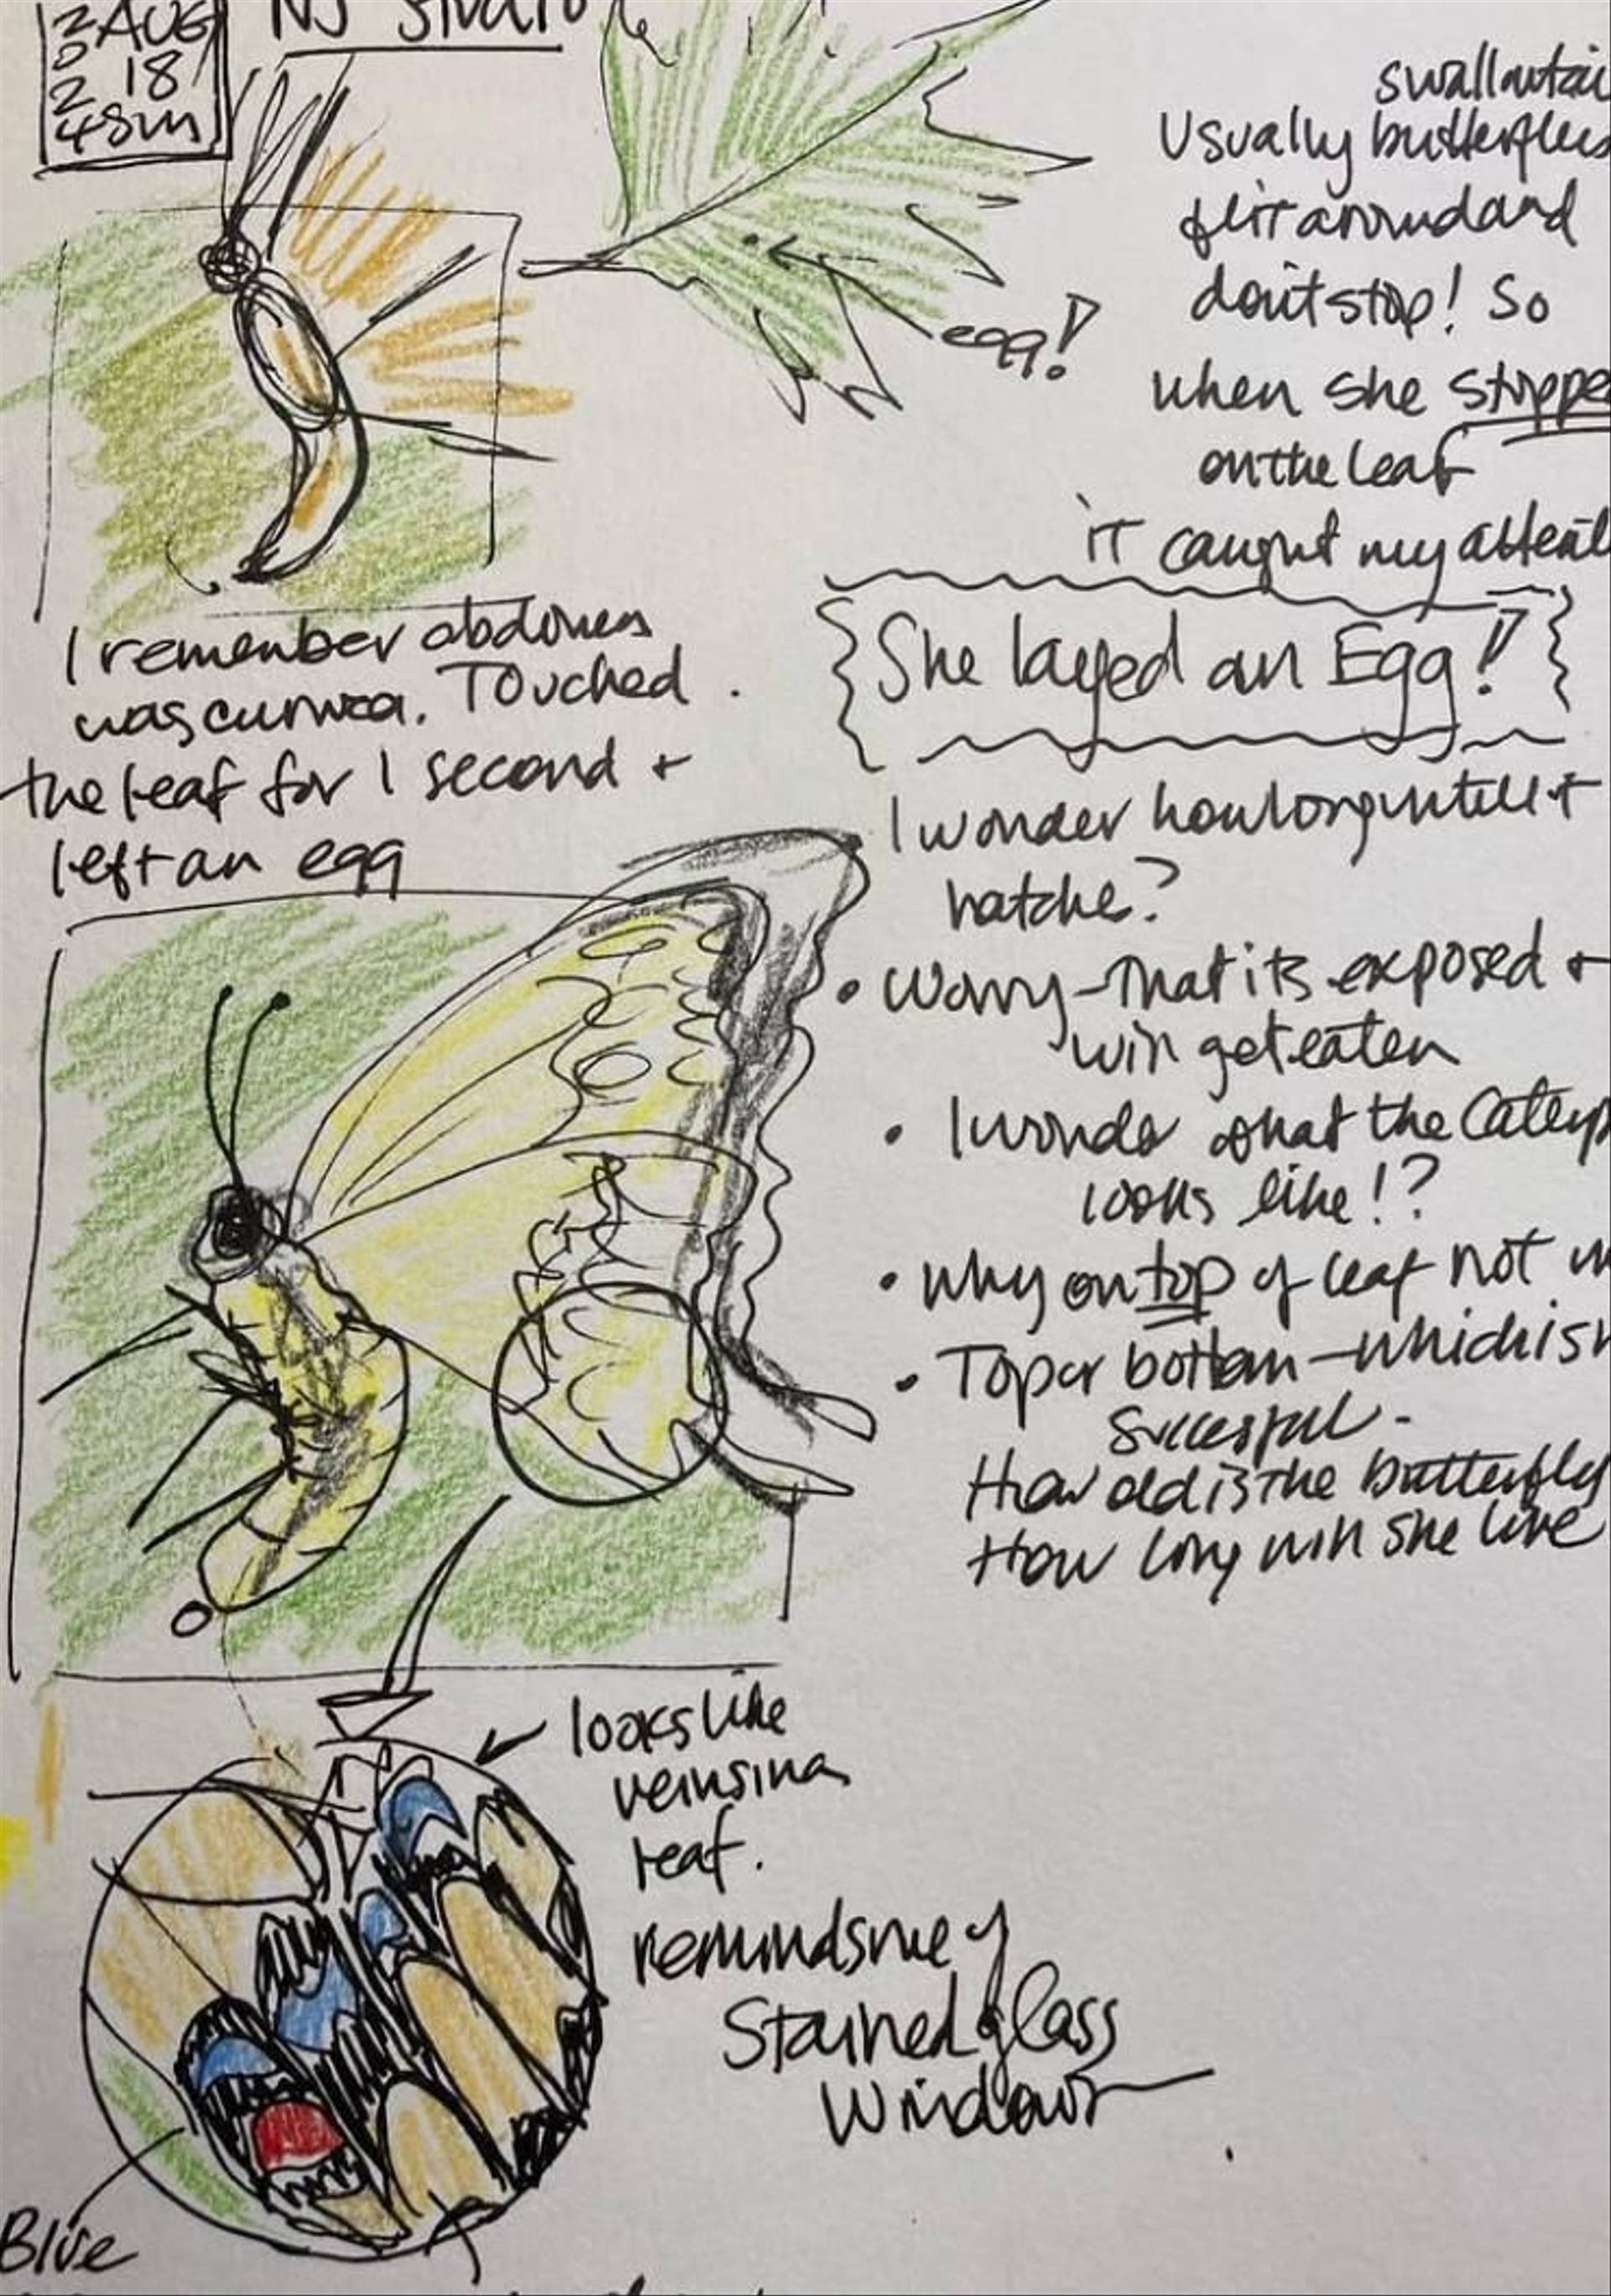 AUG
18
2024 Sun
NJ Studio
swallowtai
Usually butterflies
flit around and
don't stop! So
when she stoppe
on the leaf
it caught my attenti
egg!
She layed an Egg!
I remember abdomen
was curved. Touched
the leaf for 1 second +
left an egg
I wonder how long until it
hatche?
• Worry - that its exposed +
will get eaten
• I wonder what the Caterp
looks like!?
• why on top of leaf not u
• Top or bottom - which is
Successful -
How old is the butterfly
How long will she live
looks like
veins in a
leaf.
reminds me of
Stained glass
Window
Blue